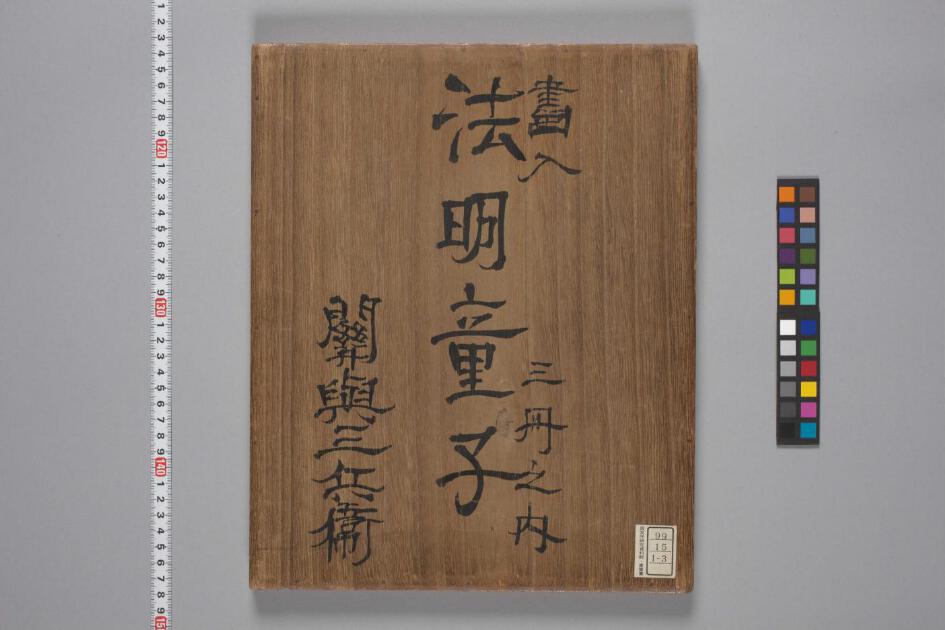 畫入
三冊之内
法明童子
關與三兵衛
99
15
1-3
1 2 3 4 5 6 7 8 9 120 1 2 3 4 5 6 7 8 9 130 1 2 3 4 5 6 7 8 9 140 1 2 3 4 5 6 7 8 9